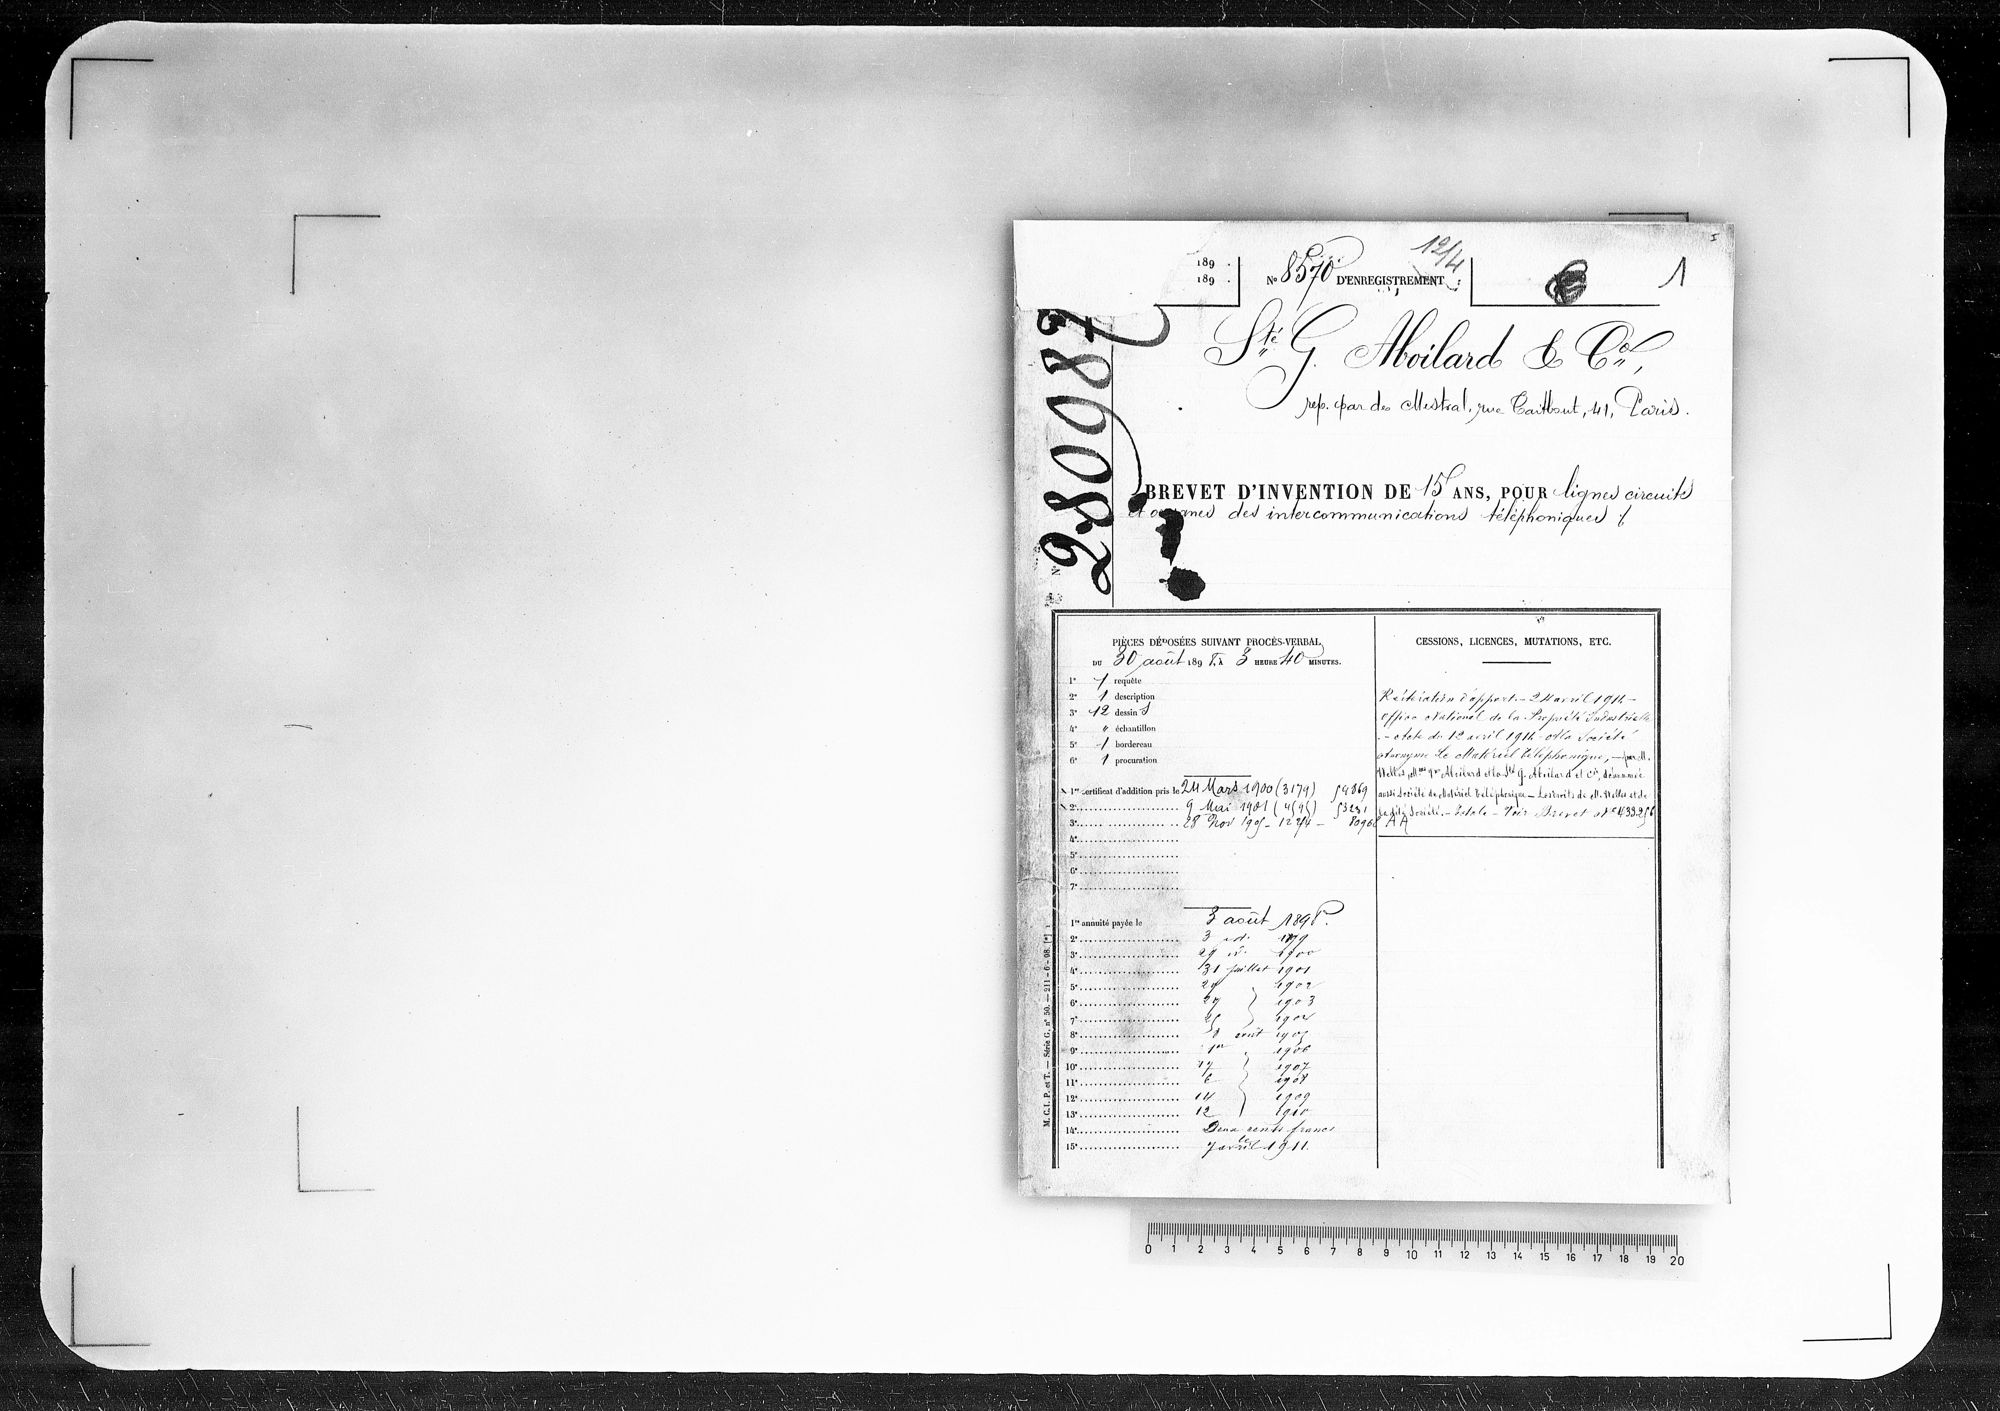 12/4
189 .
189 .
N° 8570 D'ENREGISTREMENT :
1
Sté G. Aboilard & Cie,
rep. par de Mestral, rue Taitbout, 41, Paris.
N° 280987
BREVET D'INVENTION DE 15 ANS, POUR lignes circuits
et organes des intercommunications téléphoniques
PIÈCES DÉPOSÉES SUIVANT PROCÈS-VERBAL
DU 30 août 1898 À 3 HEURE 40 MINUTES.
1° 1 requête
2° 1 description
3° 12 dessins
4° " échantillon
5° 1 bordereau
6° 1 procuration
1er certificat d'addition pris le 24 Mars 1900 (3179)
2e 9 Mai 1901
3e 28 Nov 1905
4e
5e
6e
7e
1re annuité payée le 3 août 1898
2e 3
3e 29 1900
4e 31 juillet 1901
5e 29 1902
6e 29 1903
7e
8e août 1905
9e 1er 1906
10e 1907
11e 6 1908
12e 14 1909
13e 12 1910
14e Deux cents francs
15e 7 avril 1911.
CESSIONS, LICENCES, MUTATIONS, ETC.
Réitération d'apport. - 24 avril 1914 -
Office National de la Propriété Industrielle
- Acte du 12 avril 1914 - A la Société
Anonyme Le Matériel Téléphonique, - par M.
Welles, Mme Vve Aboilard et la Sté G. Aboilard et Cie, dénommée
aussi Société de Matériel Téléphonique - Les droits de M. Welles et de
la dite Société. - Totale - Voir Brevet N° 433.256
M. C. I. P. et T. — Série G, n° 50. — 211-6-98. [*]
0 1 2 3 4 5 6 7 8 9 10 11 12 13 14 15 16 17 18 19 20